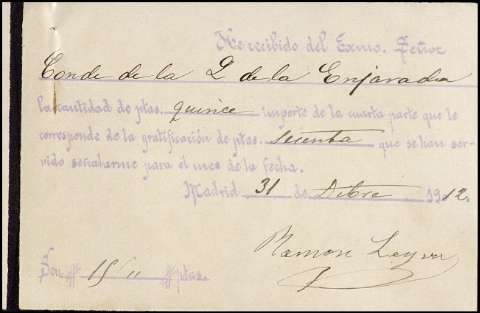 He recibido del Exmo. Señor
Conde de la Q de la Enjarada
la cantidad de ptas. quince importe de la cuarta parte que le
corresponde de la gratificación de ptas. sesenta que se han ser-
vido señalarme para el mes de la fecha.
Madrid 31 de Dbre 1912.
Ramon Leyva
Son # 15/" # ptas.